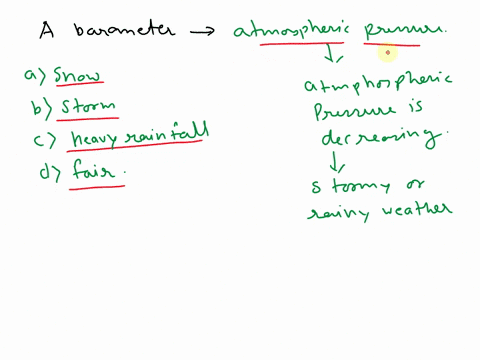 A barameter → atmospheric pressure.
a) Snow
b) Storm
c) heavy rainfall
d) fair.
↓
atmphospheric
Pressure is
decreasing.
↓
stormy or
rainy weather